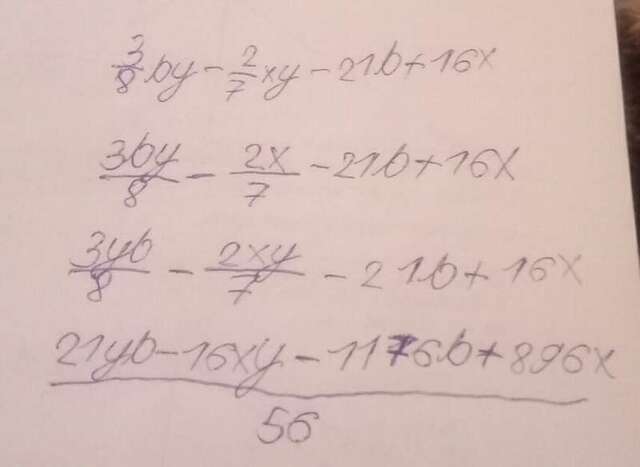 3/8 by - 2/7 xy - 21b + 16x
3by/8 - 2x/7 - 21b + 16x
3yb/8 - 2xy/7 - 21b + 16x
21yb - 16xy - 1176b + 896x
56